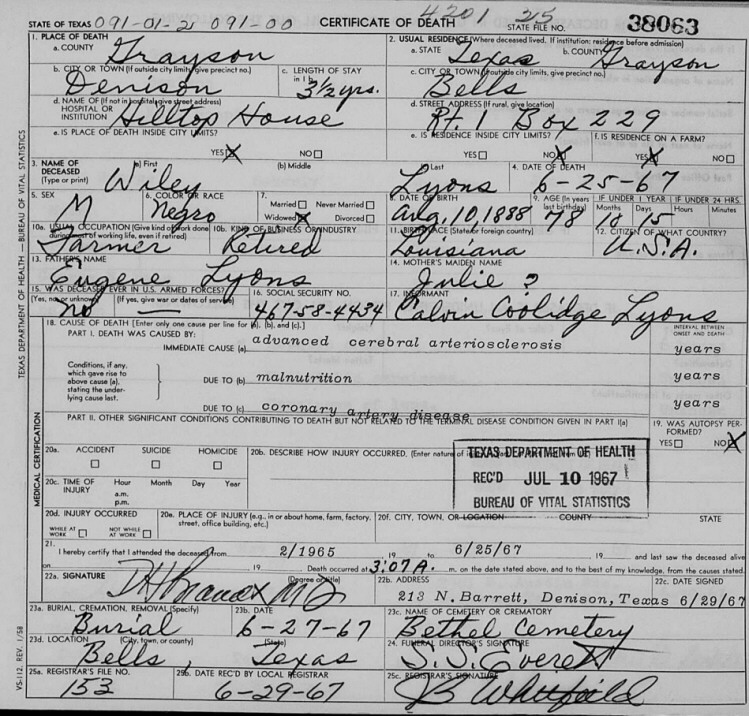 STATE OF TEXAS 091-01-2 091-00 CERTIFICATE OF DEATH 4201 25 STATE FILE NO. 38063
1. PLACE OF DEATH
a. COUNTY Grayson
2. USUAL RESIDENCE (Where deceased lived. If institution: residence before admission)
a. STATE Texas b. COUNTY Grayson
b. CITY OR TOWN (If outside city limits, give precinct no.) Denison
c. LENGTH OF STAY in 1 b 3½ yrs.
c. CITY OR TOWN (If outside city limits, give precinct no.) Bells
d. NAME OF (If not in hospital, give street address) HOSPITAL OR INSTITUTION Hilltop House
d. STREET ADDRESS (If rural, give location) Rt. 1 Box 229
e. IS PLACE OF DEATH INSIDE CITY LIMITS? YES ☒ NO ☐
e. IS RESIDENCE INSIDE CITY LIMITS? YES ☐ NO ☒
f. IS RESIDENCE ON A FARM? YES ☒ NO ☐
3. NAME OF DECEASED (Type or print) (a) First Wiley (b) Middle Last Lyons
4. DATE OF DEATH 6-25-67
5. SEX M
6. COLOR OR RACE Negro
7. Married ☐ Never Married ☐ Widowed ☒ Divorced ☐
8. DATE OF BIRTH Aug. 10, 1888
9. AGE (In years last birthday) 78 IF UNDER 1 YEAR Months Days 15 IF UNDER 24 HRS. Hours Minutes
10a. USUAL OCCUPATION (Give kind of work done during most of working life, even if retired) Farmer
10b. KIND OF BUSINESS OR INDUSTRY Retired
11. BIRTHPLACE (State or foreign country) Louisiana
12. CITIZEN OF WHAT COUNTRY? U.S.A.
13. FATHER'S NAME Eugene Lyons
14. MOTHER'S MAIDEN NAME Julie ?
15. WAS DECEASED EVER IN U.S. ARMED FORCES? (Yes, no, or unknown) no (If yes, give war or dates of service) —
16. SOCIAL SECURITY NO. 467-58-4434
17. INFORMANT Calvin Coolidge Lyons
18. CAUSE OF DEATH [Enter only one cause per line for (a), (b), and (c).]
INTERVAL BETWEEN ONSET AND DEATH
PART I. DEATH WAS CAUSED BY:
IMMEDIATE CAUSE (a) advanced cerebral arteriosclerosis years
Conditions, if any, which gave rise to above cause (a), stating the underlying cause last.
DUE TO (b) malnutrition years
DUE TO (c) coronary artery disease years
PART II. OTHER SIGNIFICANT CONDITIONS CONTRIBUTING TO DEATH BUT NOT RELATED TO THE TERMINAL DISEASE CONDITION GIVEN IN PART I(a)
19. WAS AUTOPSY PERFORMED? YES ☐ NO ☒
20a. ACCIDENT ☐ SUICIDE ☐ HOMICIDE ☐
20b. DESCRIBE HOW INJURY OCCURRED. (Enter nature of
TEXAS DEPARTMENT OF HEALTH
REC'D JUL 10 1967
BUREAU OF VITAL STATISTICS
20c. TIME OF INJURY Hour a.m. p.m. Month Day Year
20d. INJURY OCCURRED WHILE AT WORK ☐ NOT WHILE AT WORK ☐
20e. PLACE OF INJURY (e.g., in or about home, farm, factory, street, office building, etc.)
20f. CITY, TOWN, OR LOCATION COUNTY STATE
21. I hereby certify that I attended the deceased from 2/1965 19 to 6/25/67 19 and last saw the deceased alive
on 19 Death occurred at 3:07 A. m. on the date stated above, and to the best of my knowledge, from the causes stated.
22a. SIGNATURE (Degree or title) M D
22b. ADDRESS 213 N. Barrett, Denison, Texas
22c. DATE SIGNED 6/29/67
23a. BURIAL, CREMATION, REMOVAL (Specify) Burial
23b. DATE 6-27-67
23c. NAME OF CEMETERY OR CREMATORY Bethel Cemetery
23d. LOCATION (City, town, or county) (State) Bells, Texas
24. FUNERAL DIRECTOR'S SIGNATURE S. S. Everett
25a. REGISTRAR'S FILE NO. 153
25b. DATE REC'D BY LOCAL REGISTRAR 6-29-67
25c. REGISTRAR'S SIGNATURE B Whitfield
TEXAS DEPARTMENT OF HEALTH — BUREAU OF VITAL STATISTICS
MEDICAL CERTIFICATION
VS-112, REV. 1/58